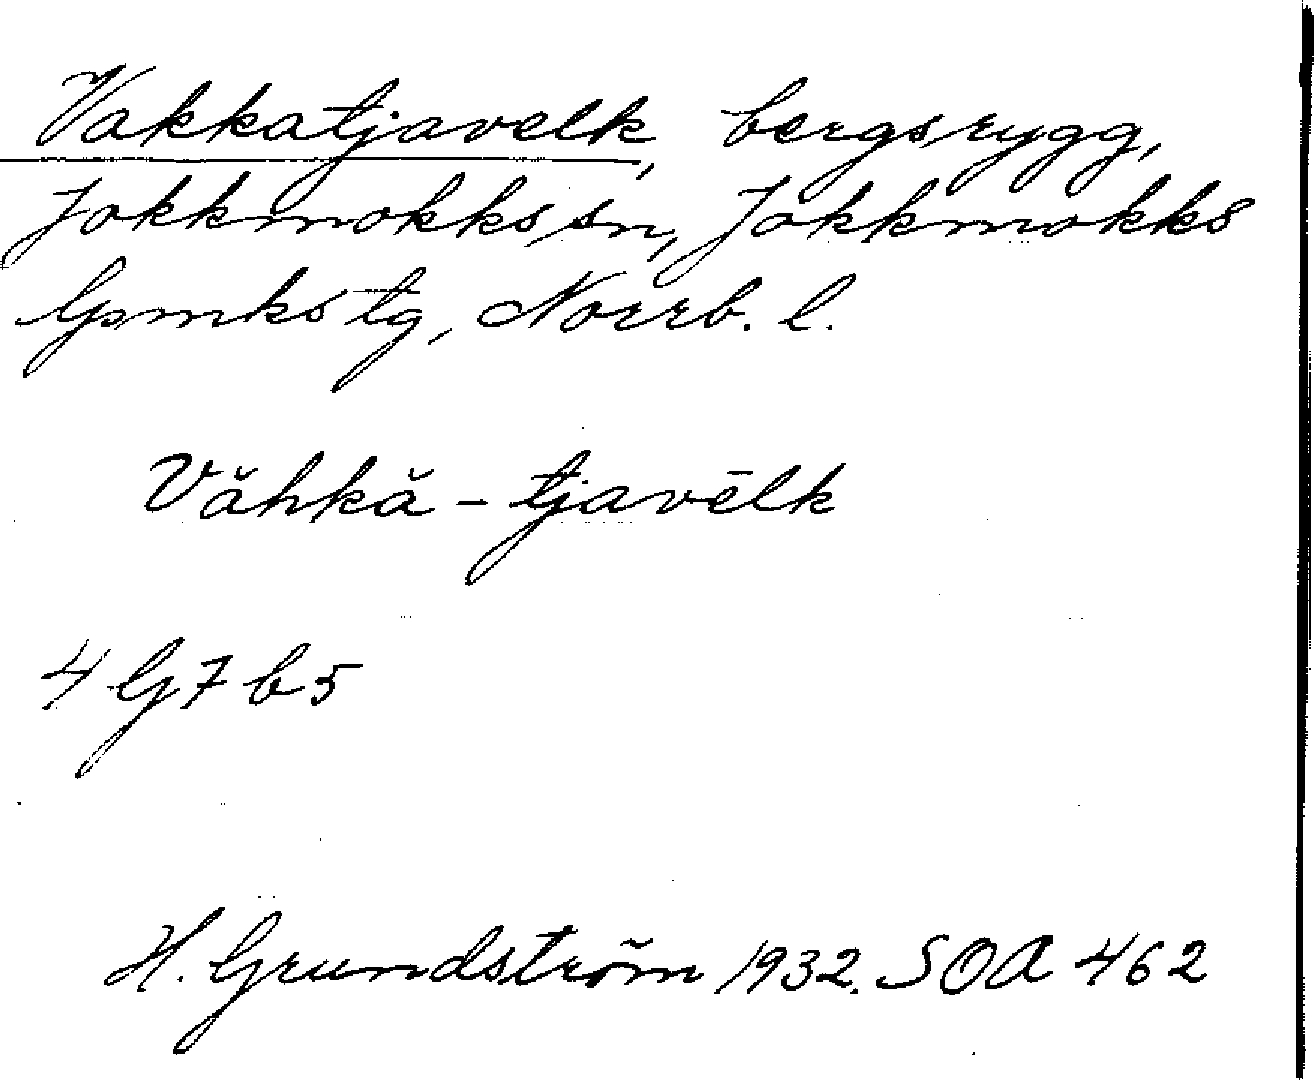 Vakkatjavelk, bergsrygg,
Jokkmokks sn, Jokkmokks
Gmks tg, Norrb. l.
Văhkă - tjavēlk
4 G 7 b 5
H. Grundström 1932. SOA 462